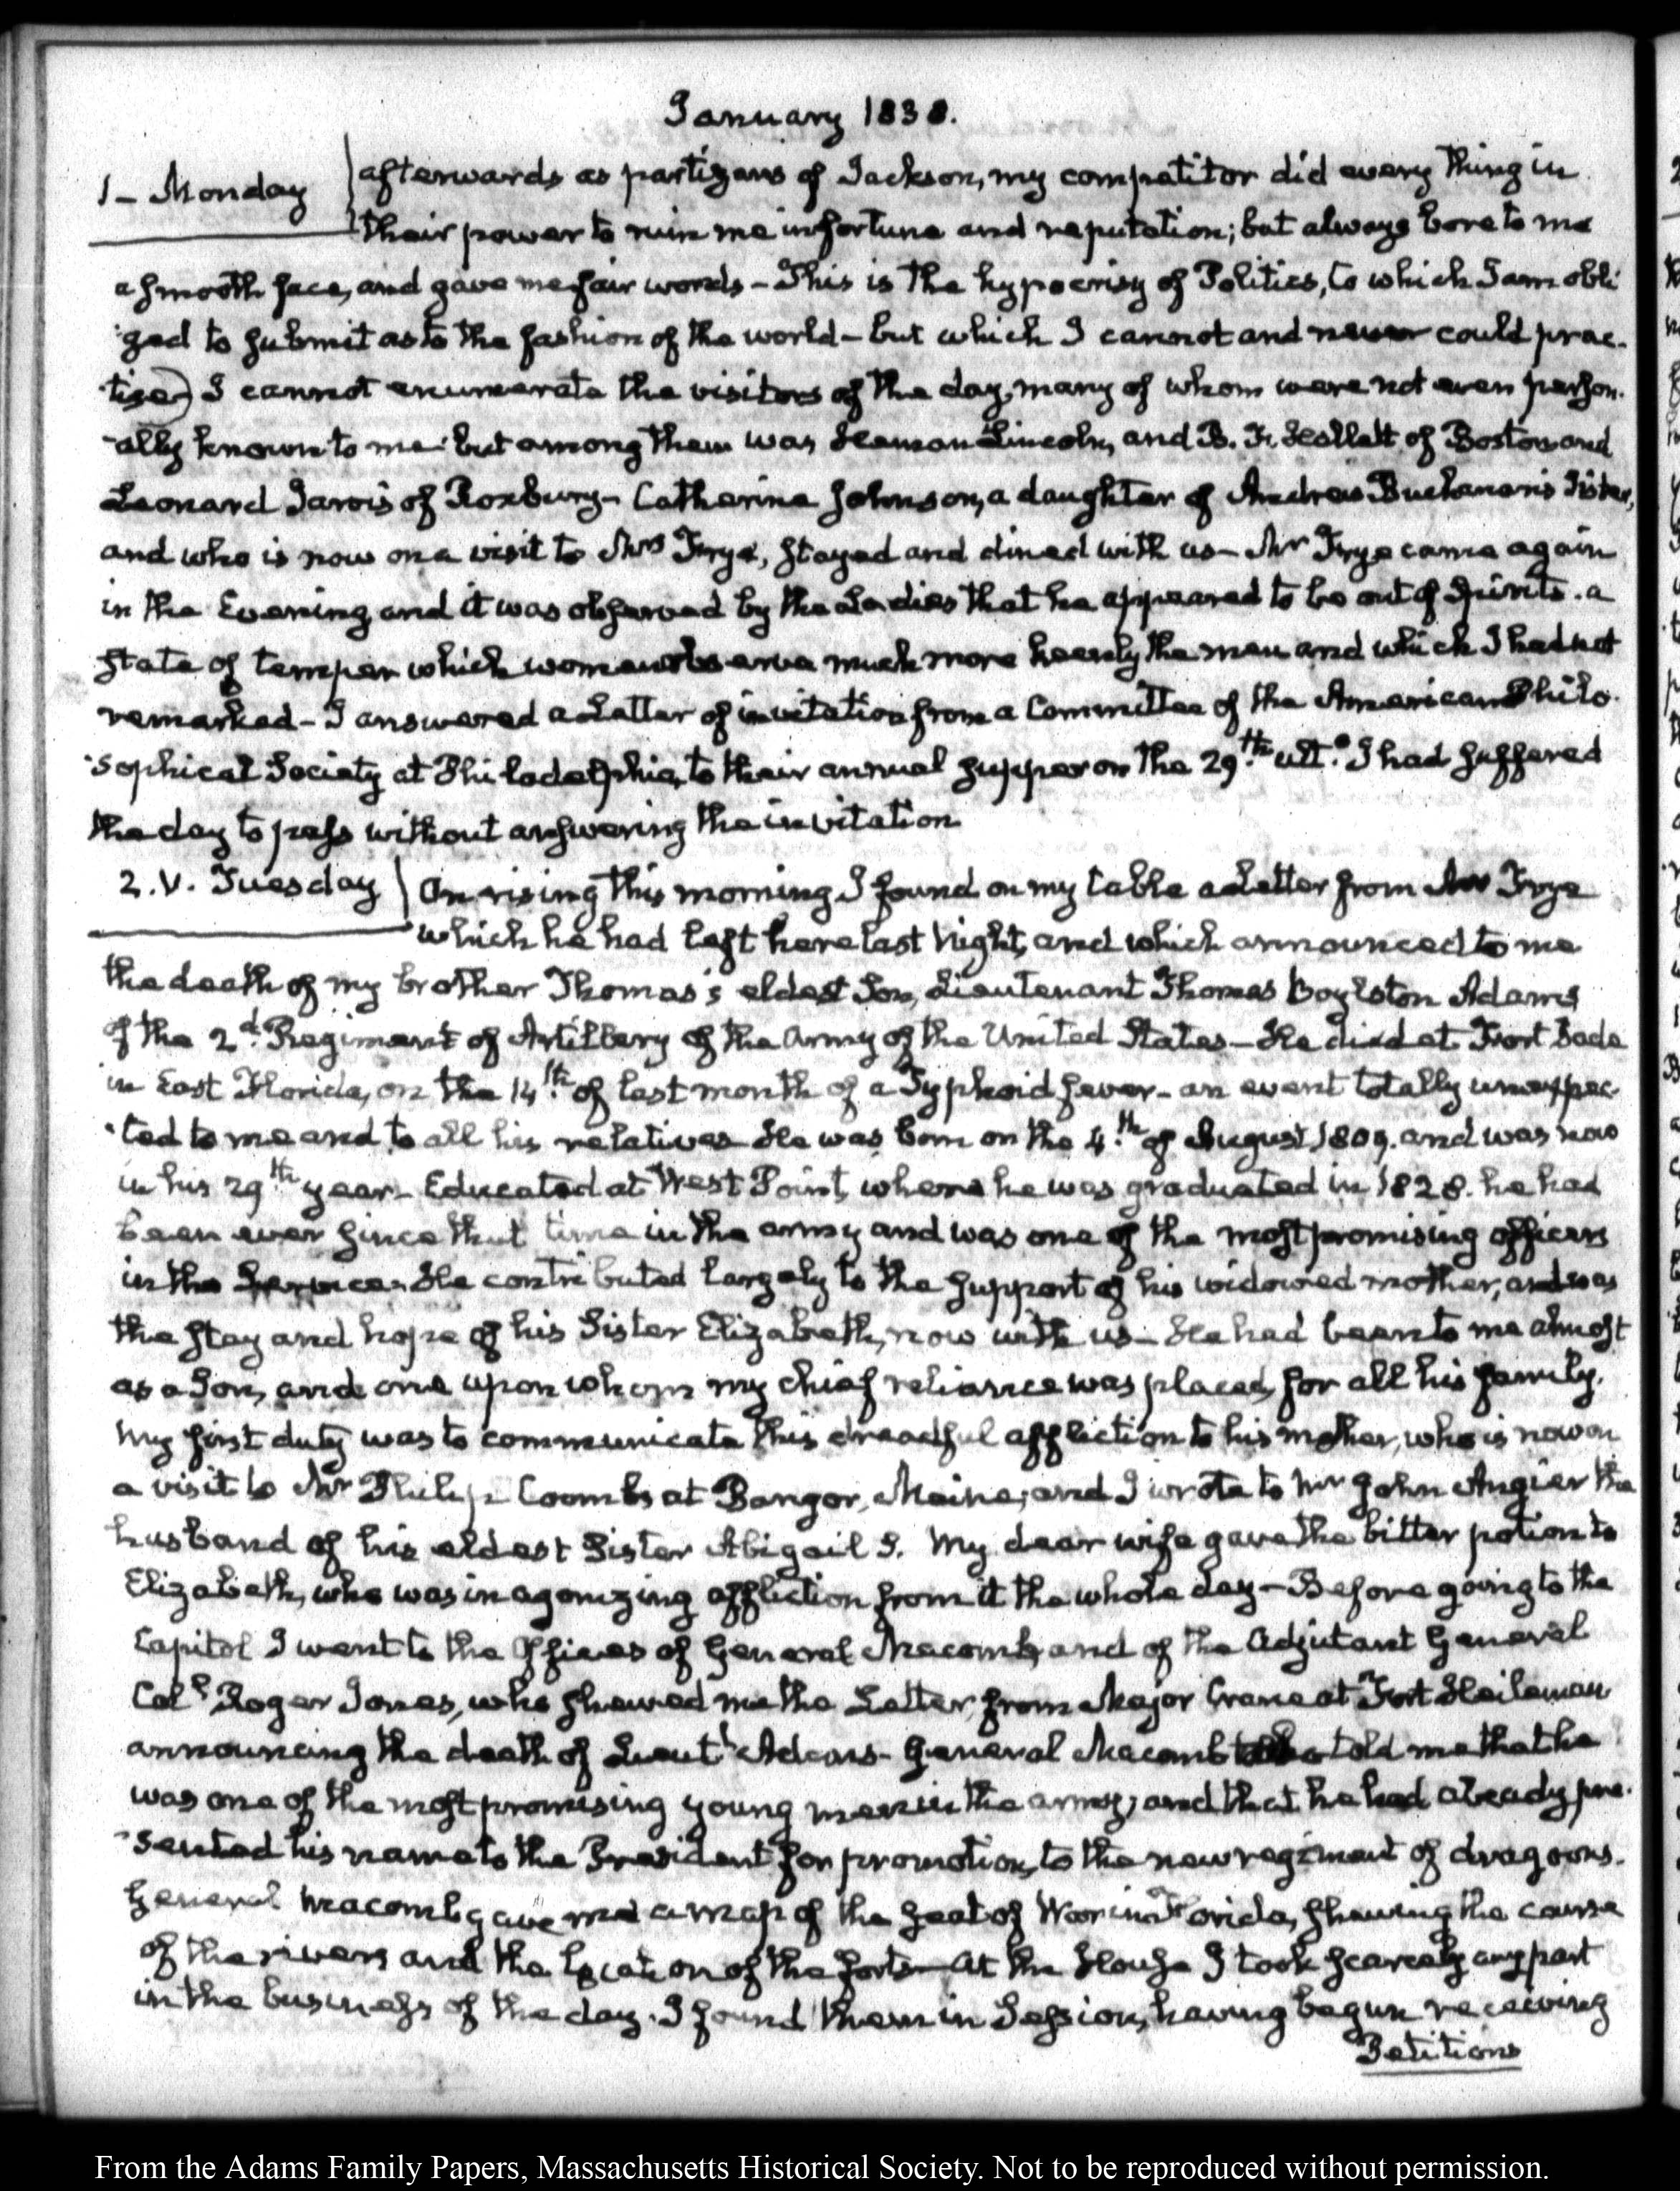 January 1838.
1 – Monday
afterwards as partizans of Jackson, my competitor did every thing in
their power to ruin me in fortune and reputation; but always bore to me
a smooth face, and gave me fair words – This is the hypocrisy of Politics, to which I am obli
ged to submit as to the fashion of the world – but which I cannot and never could prac-
tise) I cannot enumerate the visitors of the day, many of whom were not even person-
ally known to me but among them was Heman Lincoln, and B. F. Hallett of Boston and
Leonard Jarvis of Roxbury – Catherine Johnson, a daughter of Andrew Buchanan's Sister,
and who is now on a visit to Mrs Frye, stayed and dined with us – Mr Frye came again
in the Evening, and it was observed by the Ladies that he appeared to be out of Spirits. a
state of temper which women observe much more keenly the men and which I had not
remarked – I answered a Letter of invitation from a Committee of the American Philo-
sophical Society at Philadelphia, to their annual supper on the 29th ulto I had suffered
the day to pass without answering the invitation
2. V. Tuesday
On rising this morning I found on my table a Letter from Mr Frye
which he had left here last Night, and which announced to me
the death of my brother Thomas's eldest Son, Lieutenant Thomas Boylston Adams
of the 2d Regiment of Artillery of the Army of the United States – He died at Fort Dade
in East Florida, on the 14th of last month of a Typhoid fever – an event totally unexpec-
ted to me and to all his relatives He was born on the 4th of August 1809. and was now
in his 29th year – Educated at West Point, where he was graduated in 1828. he had
been ever since that time in the army and was one of the most promising officers
in the Service. He contributed largely to the support of his widowed mother, and was
the stay and hope of his Sister Elizabeth, now with us – He had been to me almost
as a Son, and one upon whom my chief reliance was placed, for all his family.
My first duty was to communicate this dreadful affliction to his mother, who is now on
a visit to Mr Philip Coombs at Bangor, Maine; and I wrote to Mr John Angier the
husband of his eldest Sister Abigail S. My dear wife gave the bitter potion to
Elizabeth, who was in agonizing affliction from it the whole day – Before going to the
Capitol I went to the Offices of General Macomb, and of the Adjutant General
Coll Roger Jones, who shewed me the Letter from Major Crane at Fort Heileman
announcing the death of Lieutt Adams – General Macomb told me that he
was one of the most promising young men in the army; and that he had already pre-
sented his name to the President for promotion, to the new regiment of dragoons.
General Macomb gave me a map of the Seat of War in Florida, shewing the course
of the rivers and the location of the forts – At the House I took scarcely any part
in the business of the day. I found them in Session, having begun receiving
Petitions
From the Adams Family Papers, Massachusetts Historical Society. Not to be reproduced without permission.